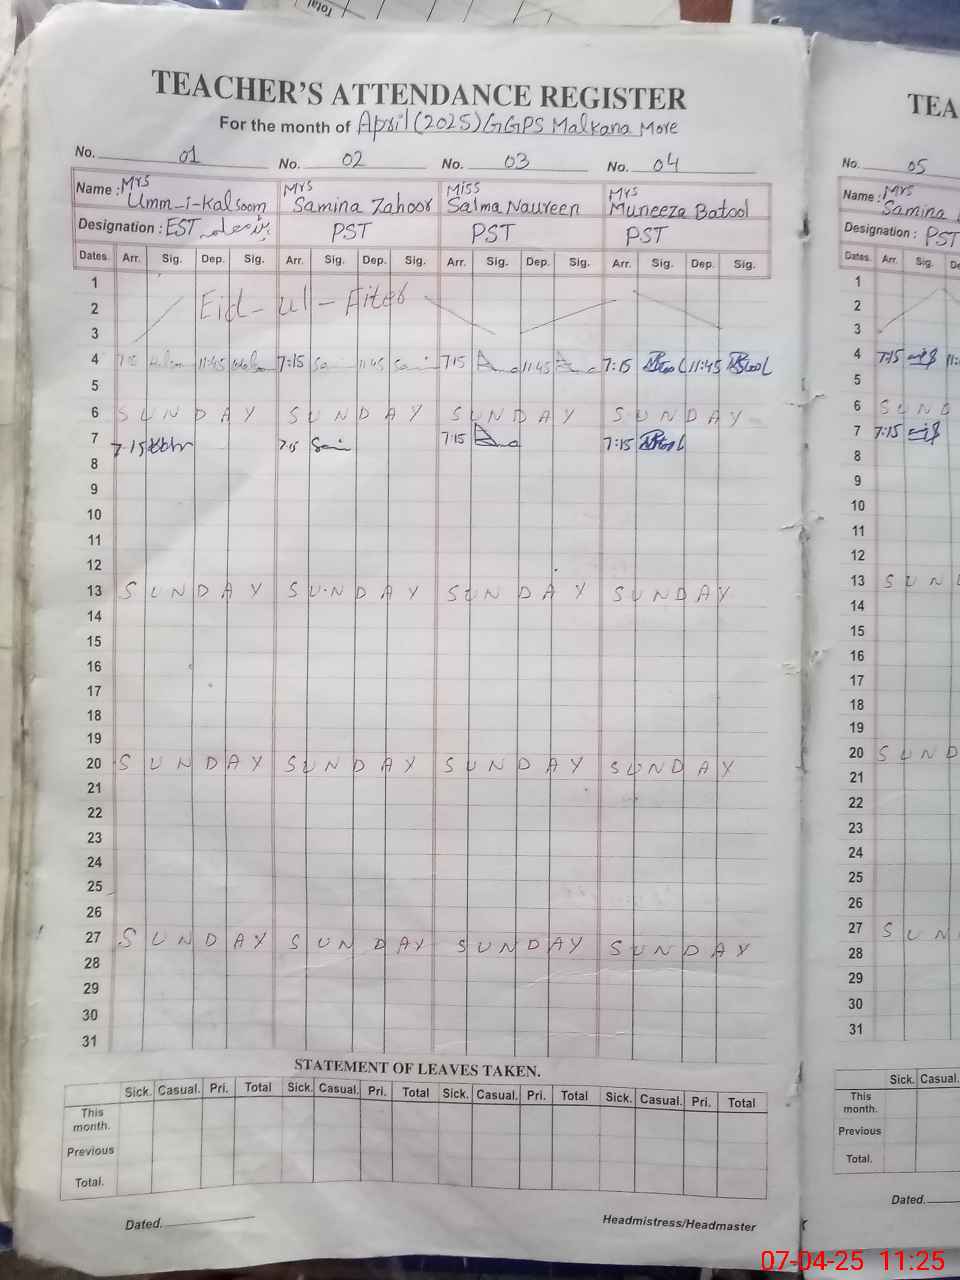 Total
TEACHER'S ATTENDANCE REGISTER
For the month of April (2025) GGPS Malkana More
No. 01 No. 02 No. 03 No. 04
Name : Mrs Umm-i-Kalsoom Mrs Samina Zahoor Miss Salma Naureen Mrs Muneeza Batool
Designation : EST PST PST PST
Dates. Arr. Sig. Dep. Sig. Arr. Sig. Dep. Sig. Arr. Sig. Dep. Sig. Arr. Sig. Dep. Sig.
1
2 Eid-ul-Fiter
3
4 7:15 11:45 7:15 11:45 7:15 11:45 7:15 11:45
5
6 SUNDAY SUNDAY SUNDAY SUNDAY
7 7:15 7:15 7:15 7:15
8
9
10
11
12
13 SUNDAY SUNDAY SUNDAY SUNDAY
14
15
16
17
18
19
20 SUNDAY SUNDAY SUNDAY SUNDAY
21
22
23
24
25
26
27 SUNDAY SUNDAY SUNDAY SUNDAY
28
29
30
31
STATEMENT OF LEAVES TAKEN.
Sick. Casual. Pri. Total Sick. Casual. Pri. Total Sick. Casual. Pri. Total Sick. Casual. Pri. Total
This month.
Previous
Total.
Dated. Headmistress/Headmaster
TEA
No. 05
Name : Mrs Samina
Designation : PST
Dates. Arr. Sig. De
1
2
3
4 7:15 11:
5
6 SUND
7 7:15
8
9
10
11
12
13 SUN
14
15
16
17
18
19
20 SUND
21
22
23
24
25
26
27 SUN
28
29
30
31
Sick. Casual.
This month.
Previous
Total.
Dated.
07-04-25 11:25